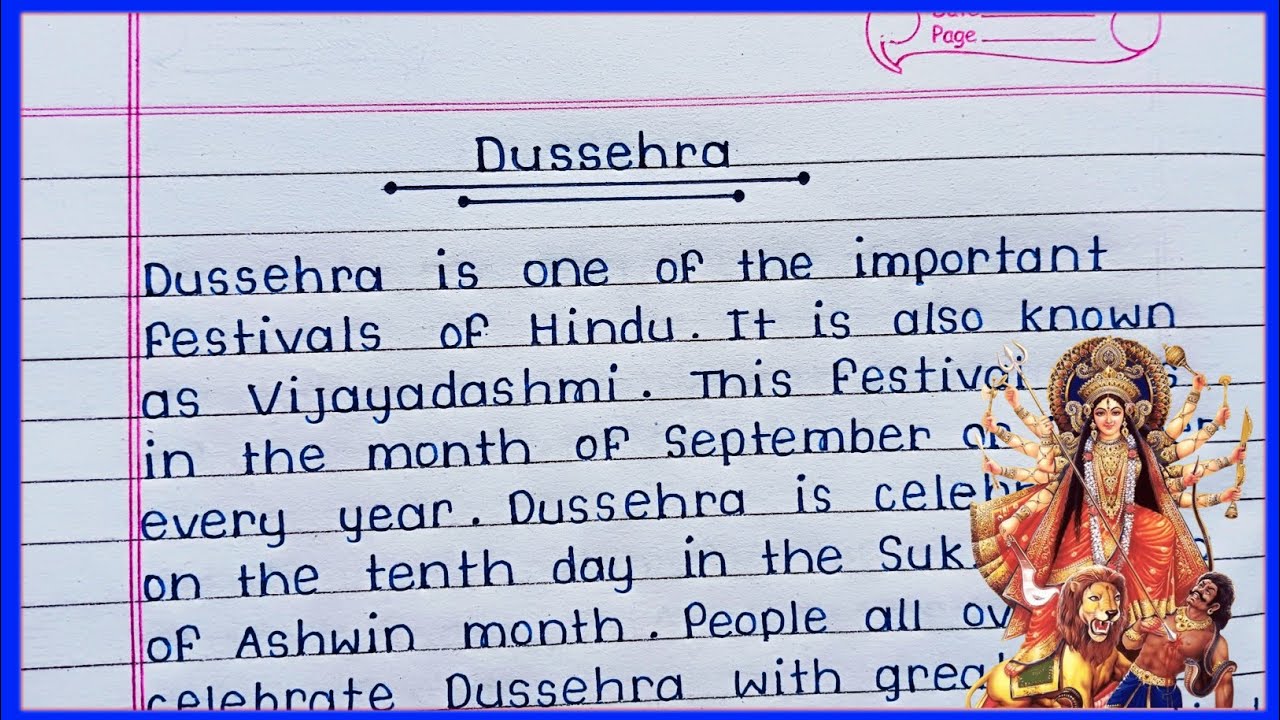 Page
Dussehra
Dussehra is one of the important
festivals of Hindu. It is also known
as Vijayadashmi. This
in the month of September
every year. Dussehra is
on the tenth day in the
of Ashwin month. People all
celebrate Dussehra with